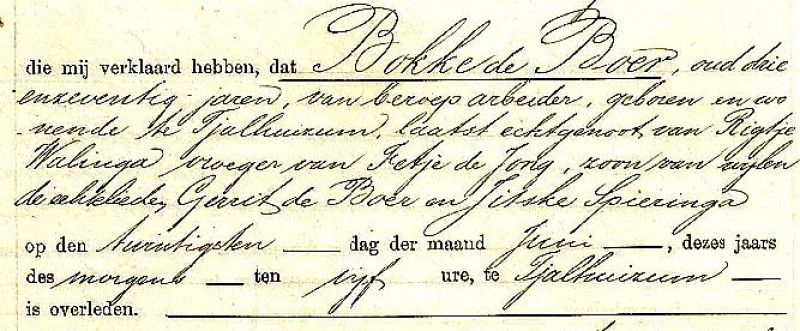 die mij verklaard hebben, dat Bokke de Boer, oud drie
enzeventig jaren, van beroep arbeider, geboren en wo
nende te Tjalhuizum, laatst echtgenoot van Rigtje
Walinga vroeger van Fetje de Jong, zoon van wijlen
de echtelieden Gerrit de Boer en Jitske Spieringa
op den twintigsten — dag der maand Juni —, dezes jaars
des morgens — ten vijf ure, te Tjalhuizum —
is overleden.